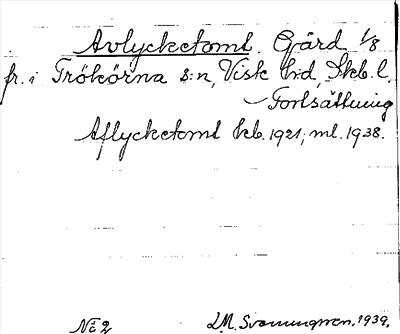 Avlycketoml. Gård 1/8
fr. i Trökörna s:n, Viske hd, Skb. l.
Fortsättning
Aflycketoml kb. 1921; ml. 1938.
N:o 2 I.M. Svenungsson. 1939.